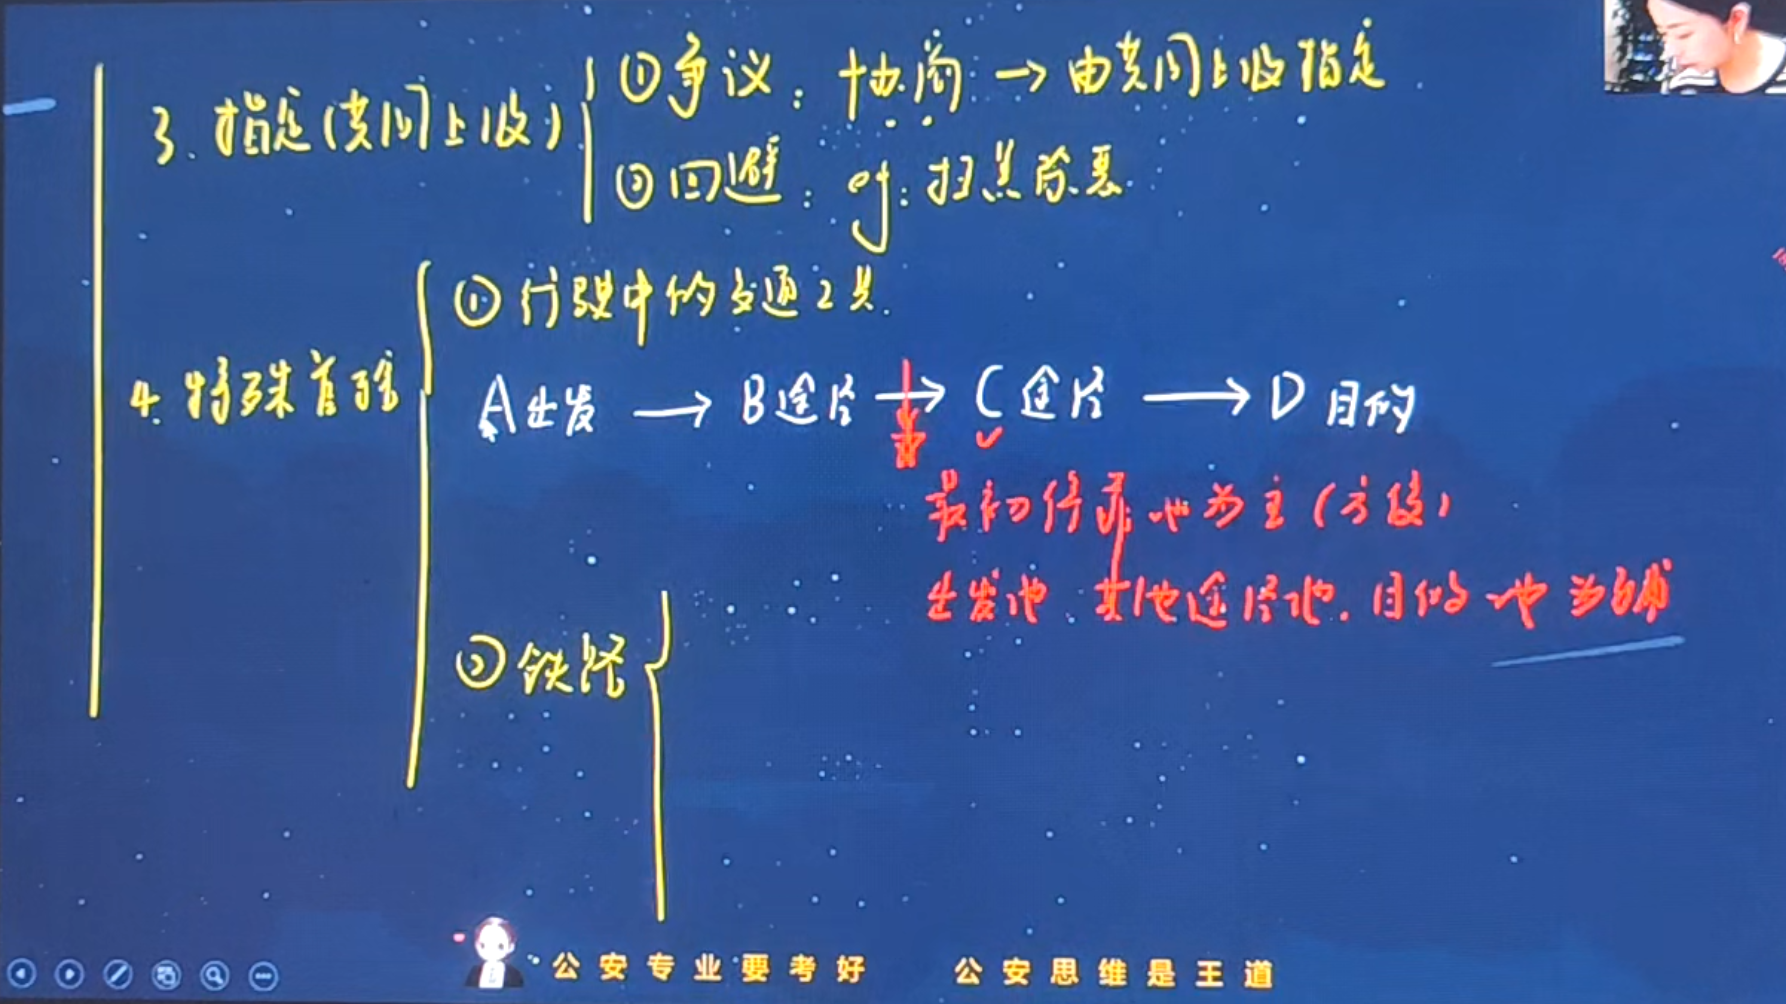 3. 指定(共同上级)
①争议: 协商 → 由共同上级指定
②回避: eg: 扫黑除恶.
4. 特殊管辖
①行驶中的交通工具.
A出发 → B途径 → C途径 → D目的
最初停靠地为主(方便)
出发地. 其他途径地. 目的地为辅
②铁路
公安专业要考好 公安思维是王道